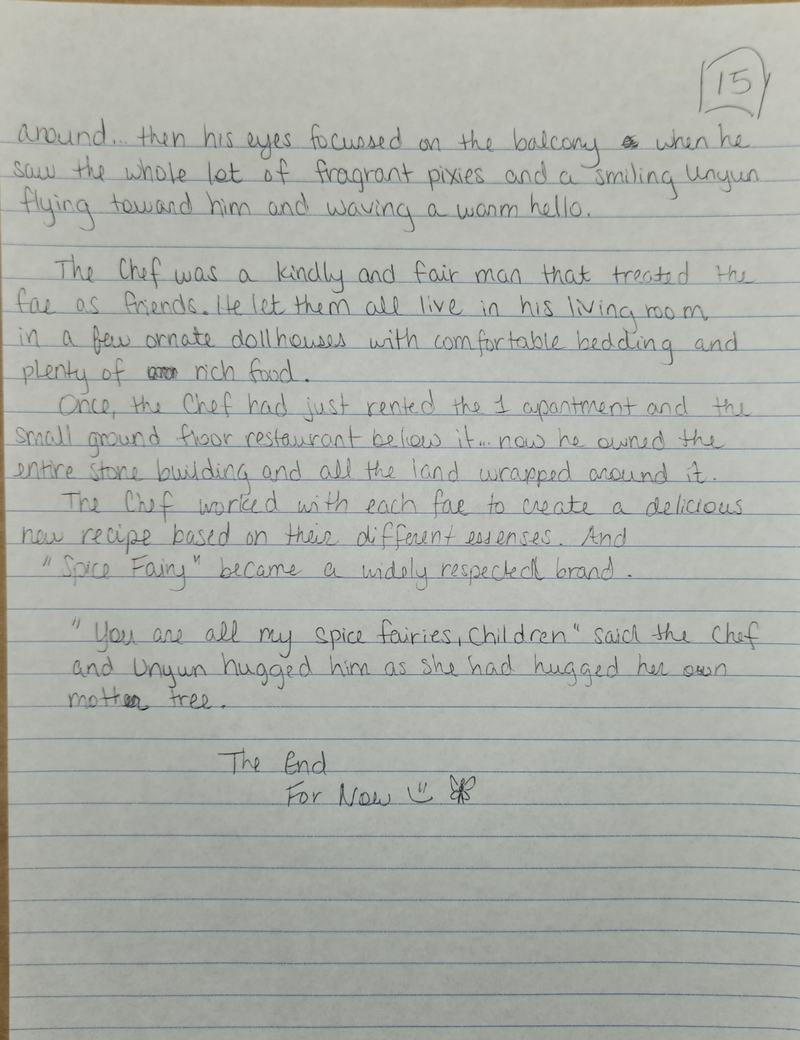 15
around... then his eyes focussed on the balcony when he
saw the whole lot of fragrant pixies and a smiling Unyun
flying toward him and waving a warm hello.
The Chef was a kindly and fair man that treated the
fae as friends. He let them all live in his living room
in a few ornate dollhouses with comfortable bedding and
plenty of rich food.
Once, the Chef had just rented the 1 apartment and the
small ground floor restaurant below it... now he owned the
entire stone building and all the land wrapped around it.
The Chef worked with each fae to create a delicious
new recipe based on their different essenses. And
"Spice Fairy" became a widely respected brand.
"You are all my spice fairies, Children" said the Chef
and Unyun hugged him as she had hugged her own
mother tree.
The End
For Now